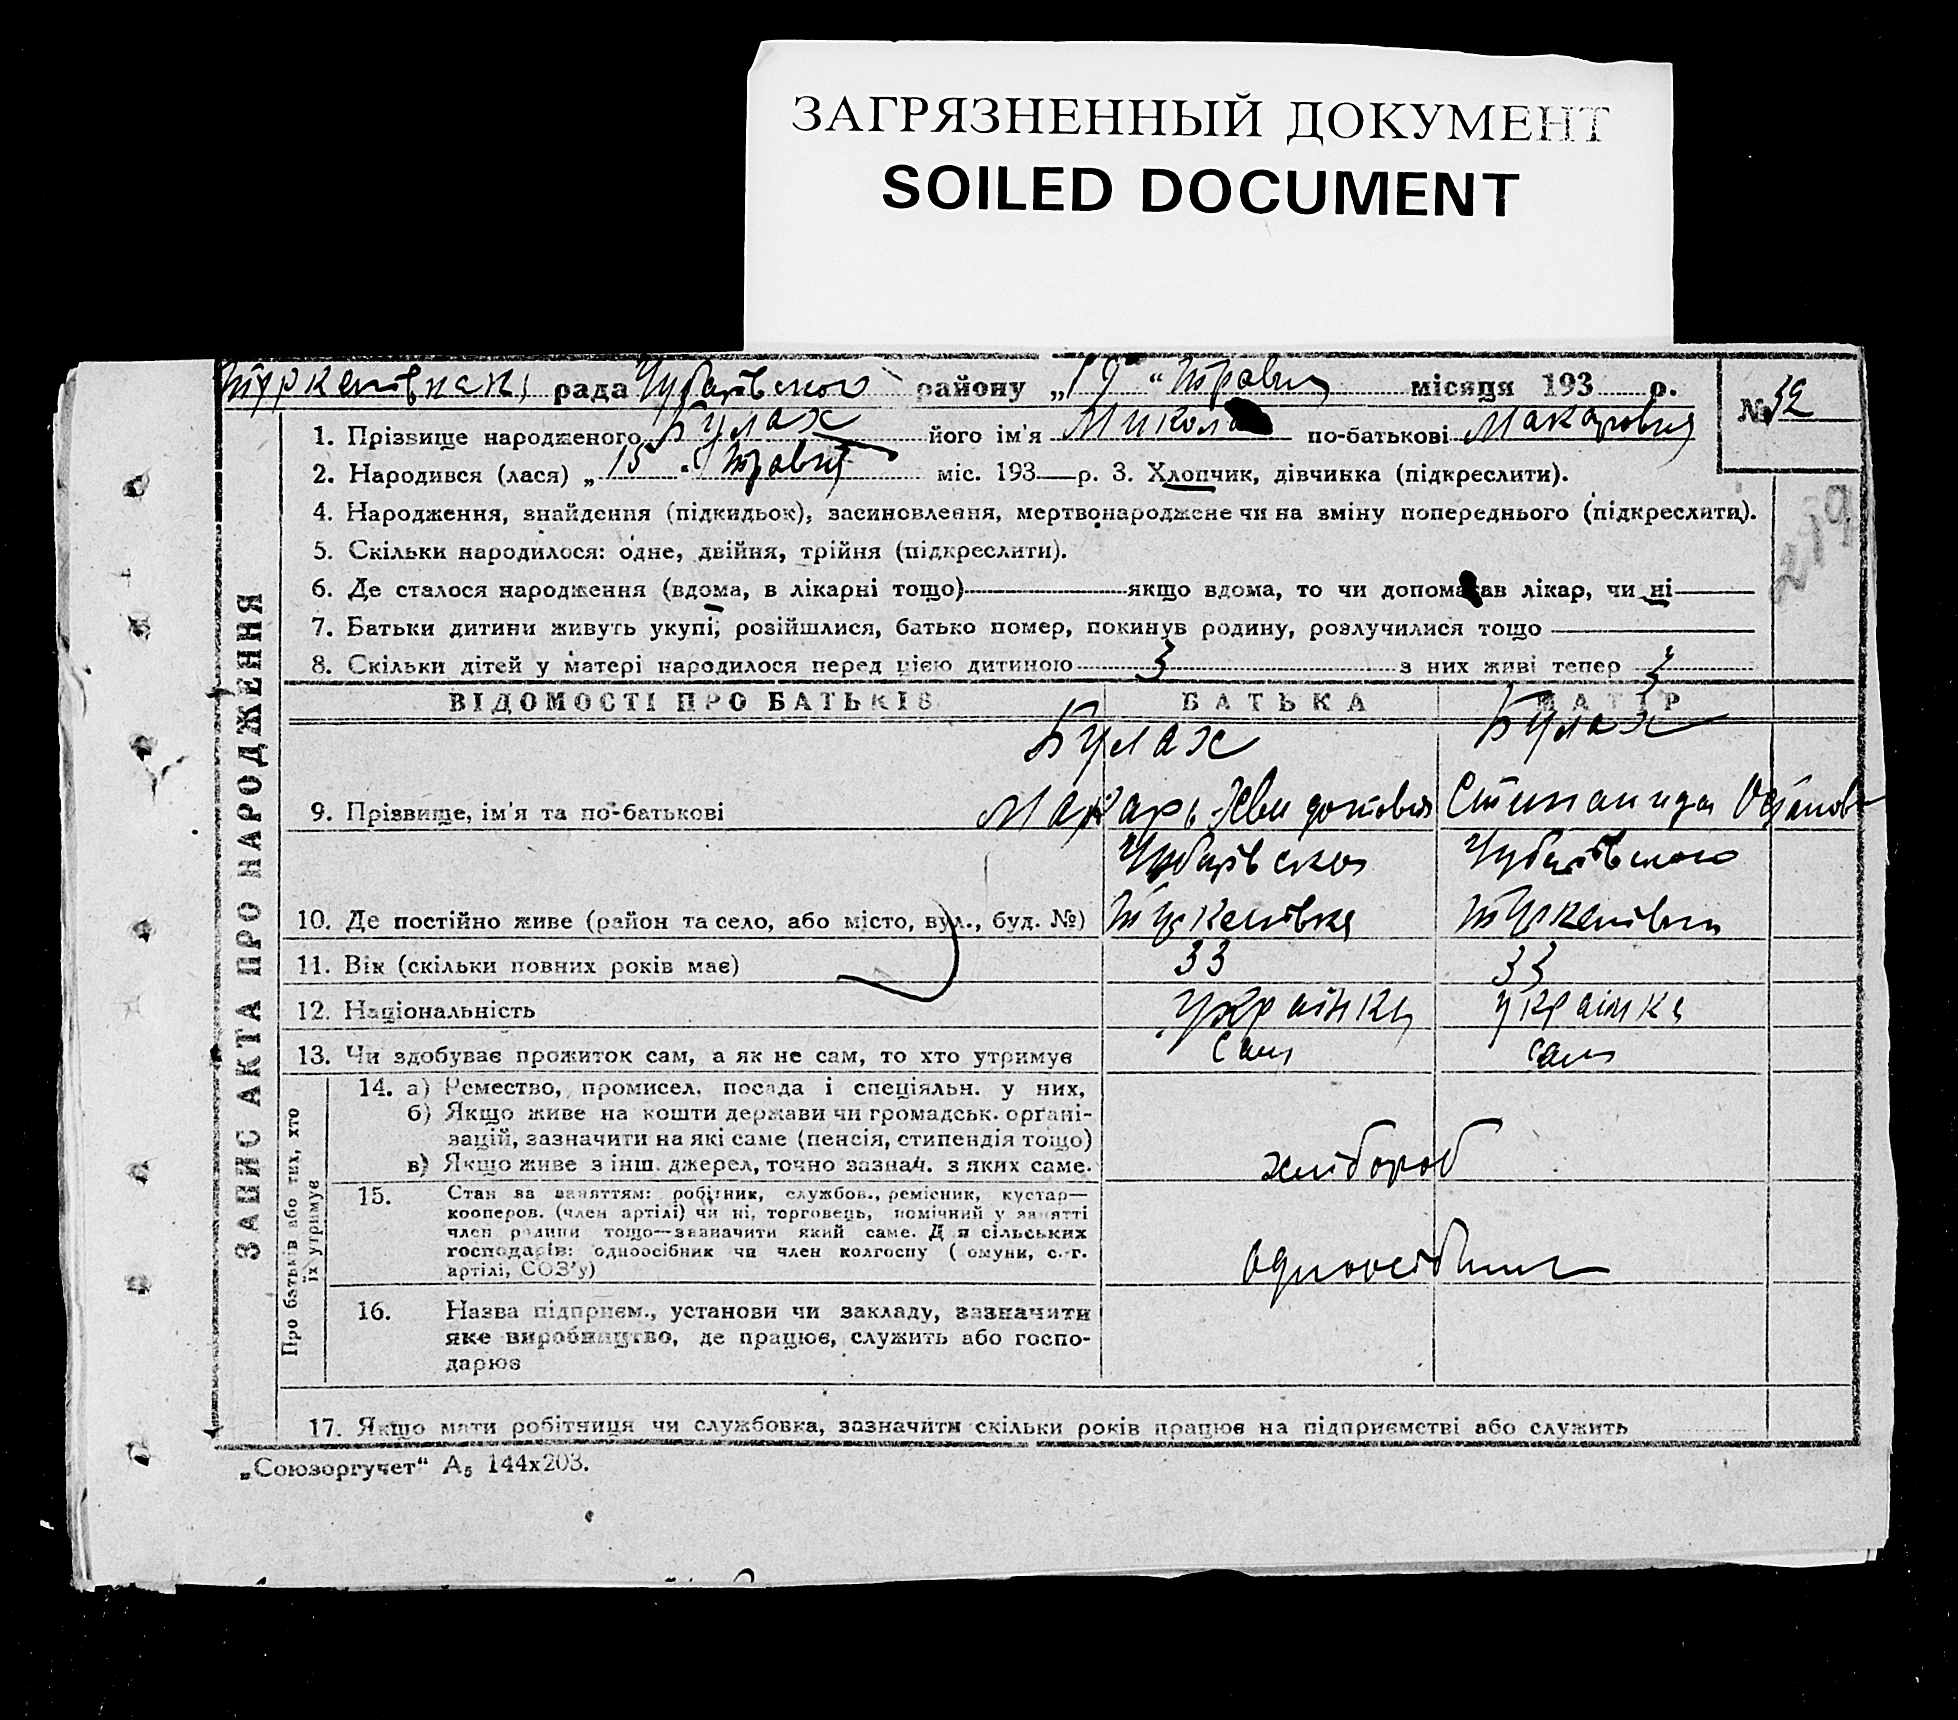 ЗАГРЯЗНЕННЫЙ ДОКУМЕНТ
SOILED DOCUMENT
рада Чубарівського району „19“ травня місяця 193 р.
№ 32
1. Прізвище народженого Булах його ім'я Микола по-батькові Макарович
2. Народився (лася) „15 травня міс. 193 р. 3. Хлопчик, дівчинка (підкреслити).
4. Народження, знайдення (підкидьок), засиновлення, мертвонароджене чи на зміну попереднього (підкреслити).
5. Скільки народилося: одне, двійня, трійня (підкреслити).
6. Де сталося народження (вдома, в лікарні тощо) якщо вдома, то чи допомагав лікар, чи ні
7. Батьки дитини живуть укупі, розійшлися, батько помер, покинув родину, розлучилися тощо
8. Скільки дітей у матері народилося перед цією дитиною 3 з них живі тепер 3
ЗАПИС АКТА ПРО НАРОДЖЕННЯ
ВІДОМОСТІ ПРО БАТЬКІВ БАТЬКА МАТІР
Булах Булах
9. Прізвище, ім'я та по-батькові Макарь
10. Де постійно живе (район та село, або місто, вул., буд. №)
11. Вік (скільки повних років має) 33 33
12. Національність українка
13. Чи здобуває прожиток сам, а як не сам, то хто утримує сам
Про батьків або тих, хто їх утримує
14. а) Ремество, промисел, посада і спеціяльн. у них,
б) Якщо живе на кошти держави чи громадськ. органі-
зацій, зазначити на які саме (пенсія, стипендія тощо)
в) Якщо живе з інш. джерел, точно зазнач. з яких саме.
хлібороб
15. Стан за заняттям: робітник, службов., ремісник, кустар—
кооперов. (член артілі) чи ні, торговець, помічний у занятті
член родини тощо—зазначити який саме. Для сільських
господарів: одноосібник чи член колгоспу (комуни, с.-г.
артілі, СОЗ'у)
одноосібник
16. Назва підприєм., установи чи закладу, зазначити
яке виробництво, де працює, служить або госпо-
дарює
17. Якщо мати робітниця чи службовка, зазначити скільки років працює на підприємстві або служить
„Союзоргучет“ А₅ 144х203.